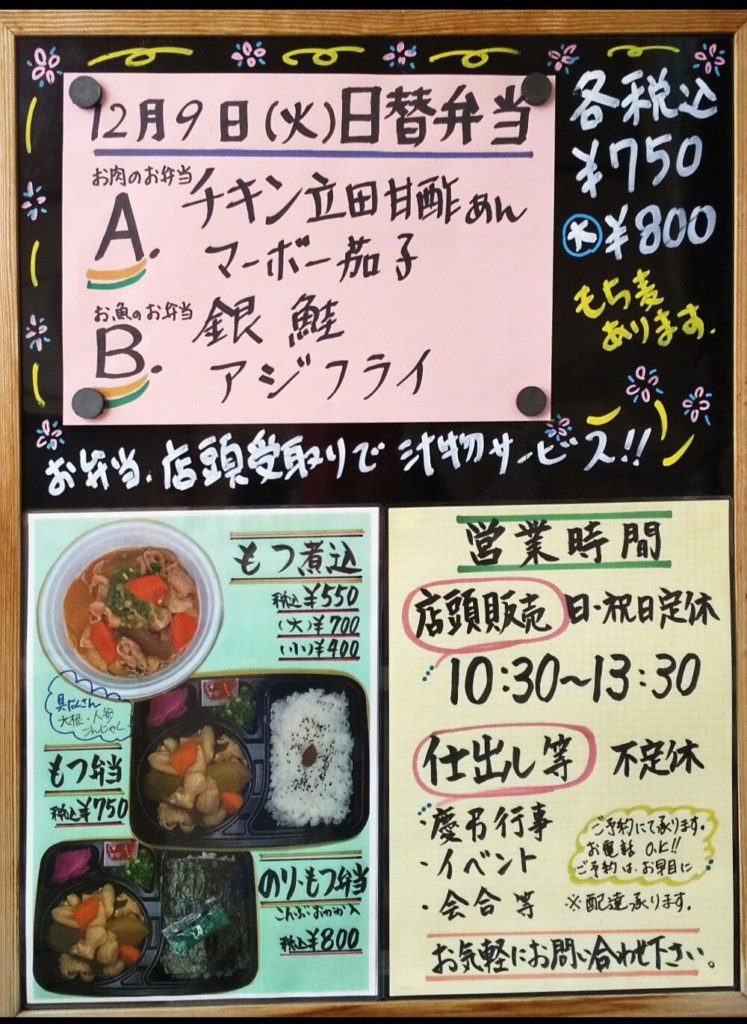 12月9日(火)日替弁当
お肉のお弁当
A.
チキン立田甘酢あん
マーボー茄子
お魚のお弁当
B.
銀鮭
アジフライ
各税込
¥750
大¥800
もち麦
あります.
お弁当、店頭受取りで 汁物サービス!!
もつ煮込
税込¥550
(大)¥700
(小)¥400
具だくさん
大根・人参
こんにゃく
もつ弁当
税込¥750
のり・もつ弁当
こんぶ・おかか入
税込¥800
営業時間
店頭販売 日・祝日定休
10:30〜13:30
仕出し等 不定休
・慶弔行事
・イベント
・会合等
ご予約にて承ります.
お電話 O.K!!
ご予約は、お早目に
※配達承ります.
お気軽にお問い合わせ下さい。